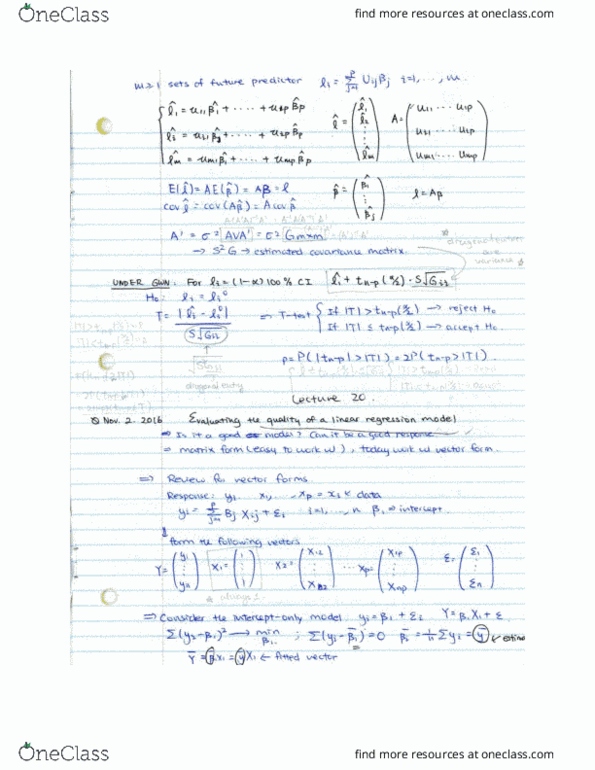 OneClass
find more resources at oneclass.com
m≥1 sets of future predictor ℓi = Σ(j=1 to p) Uij βj i=1, ..., m.
ℓ̂1 = u11 β̂1 + ..... + u1p β̂p
ℓ̂2 = u21 β̂2 + ..... + u2p β̂p
ℓ̂m = um1 β̂1 + ..... + ump β̂p
ℓ̂ = (ℓ̂1 ℓ̂2 ⋮ ℓ̂m) A = (u11 ... u1p u21 ... u2p um1 ... ump)
E(ℓ̂) = AE(β̂) = Aβ = ℓ β̂ = (β̂1 ⋮ β̂j) ℓ = Aβ
cov ℓ̂ = cov(Aβ̂) = A cov β̂
A' = σ² [AVA'] = σ² [Gm×m]
→ S²G → estimated covariance matrix.
are variance
UNDER GWN: For ℓi = (1-α)100% CI ℓ̂i ± tn-p(α/2) · S√Gii
H0: ℓi = ℓi⁰
T = |ℓ̂i - ℓi⁰| / S√Gii ⇒ T-test { If |T| > tn-p(α/2) → reject H0
If |T| ≤ tn-p(α/2) → accept H0.
p = P(|tn-p| > |T|) = 2P(tn-p > |T|).
diagonal entry
Lecture 20.
Nov. 2. 2016 Evaluating the quality of a linear regression model
⇒ Is it a good model? Can it be a good response
⇒ matrix form (easy to work w/), today work w/ vector form.
⇒ Review for vector forms.
Response: yi. x1, ..., xp = data
yi = Σ(j=1 to p) βj Xij + εi i=1, ..., n β1 ⇒ intercept.
↓ form the following vectors
Y = (y1 ⋮ yn) X1 = (1 ⋮ 1) X2 = (X12 ⋮ Xn2) ... Xp = (X1p ⋮ Xnp) ε = (ε1 ⋮ εn)
* always 1
⇒ Consider the intercept-only model yi = β1 + εi Y = β1 X1 + ε
Σ(yi - β1)² → min β1 ; Σ(yi - β̄1) = 0 β̄1 = 1/n Σ yi = ȳ
Ȳ = β̂1 X1 = ȳ X1 ← fitted vector
OneClass
find more resources at oneclass.com